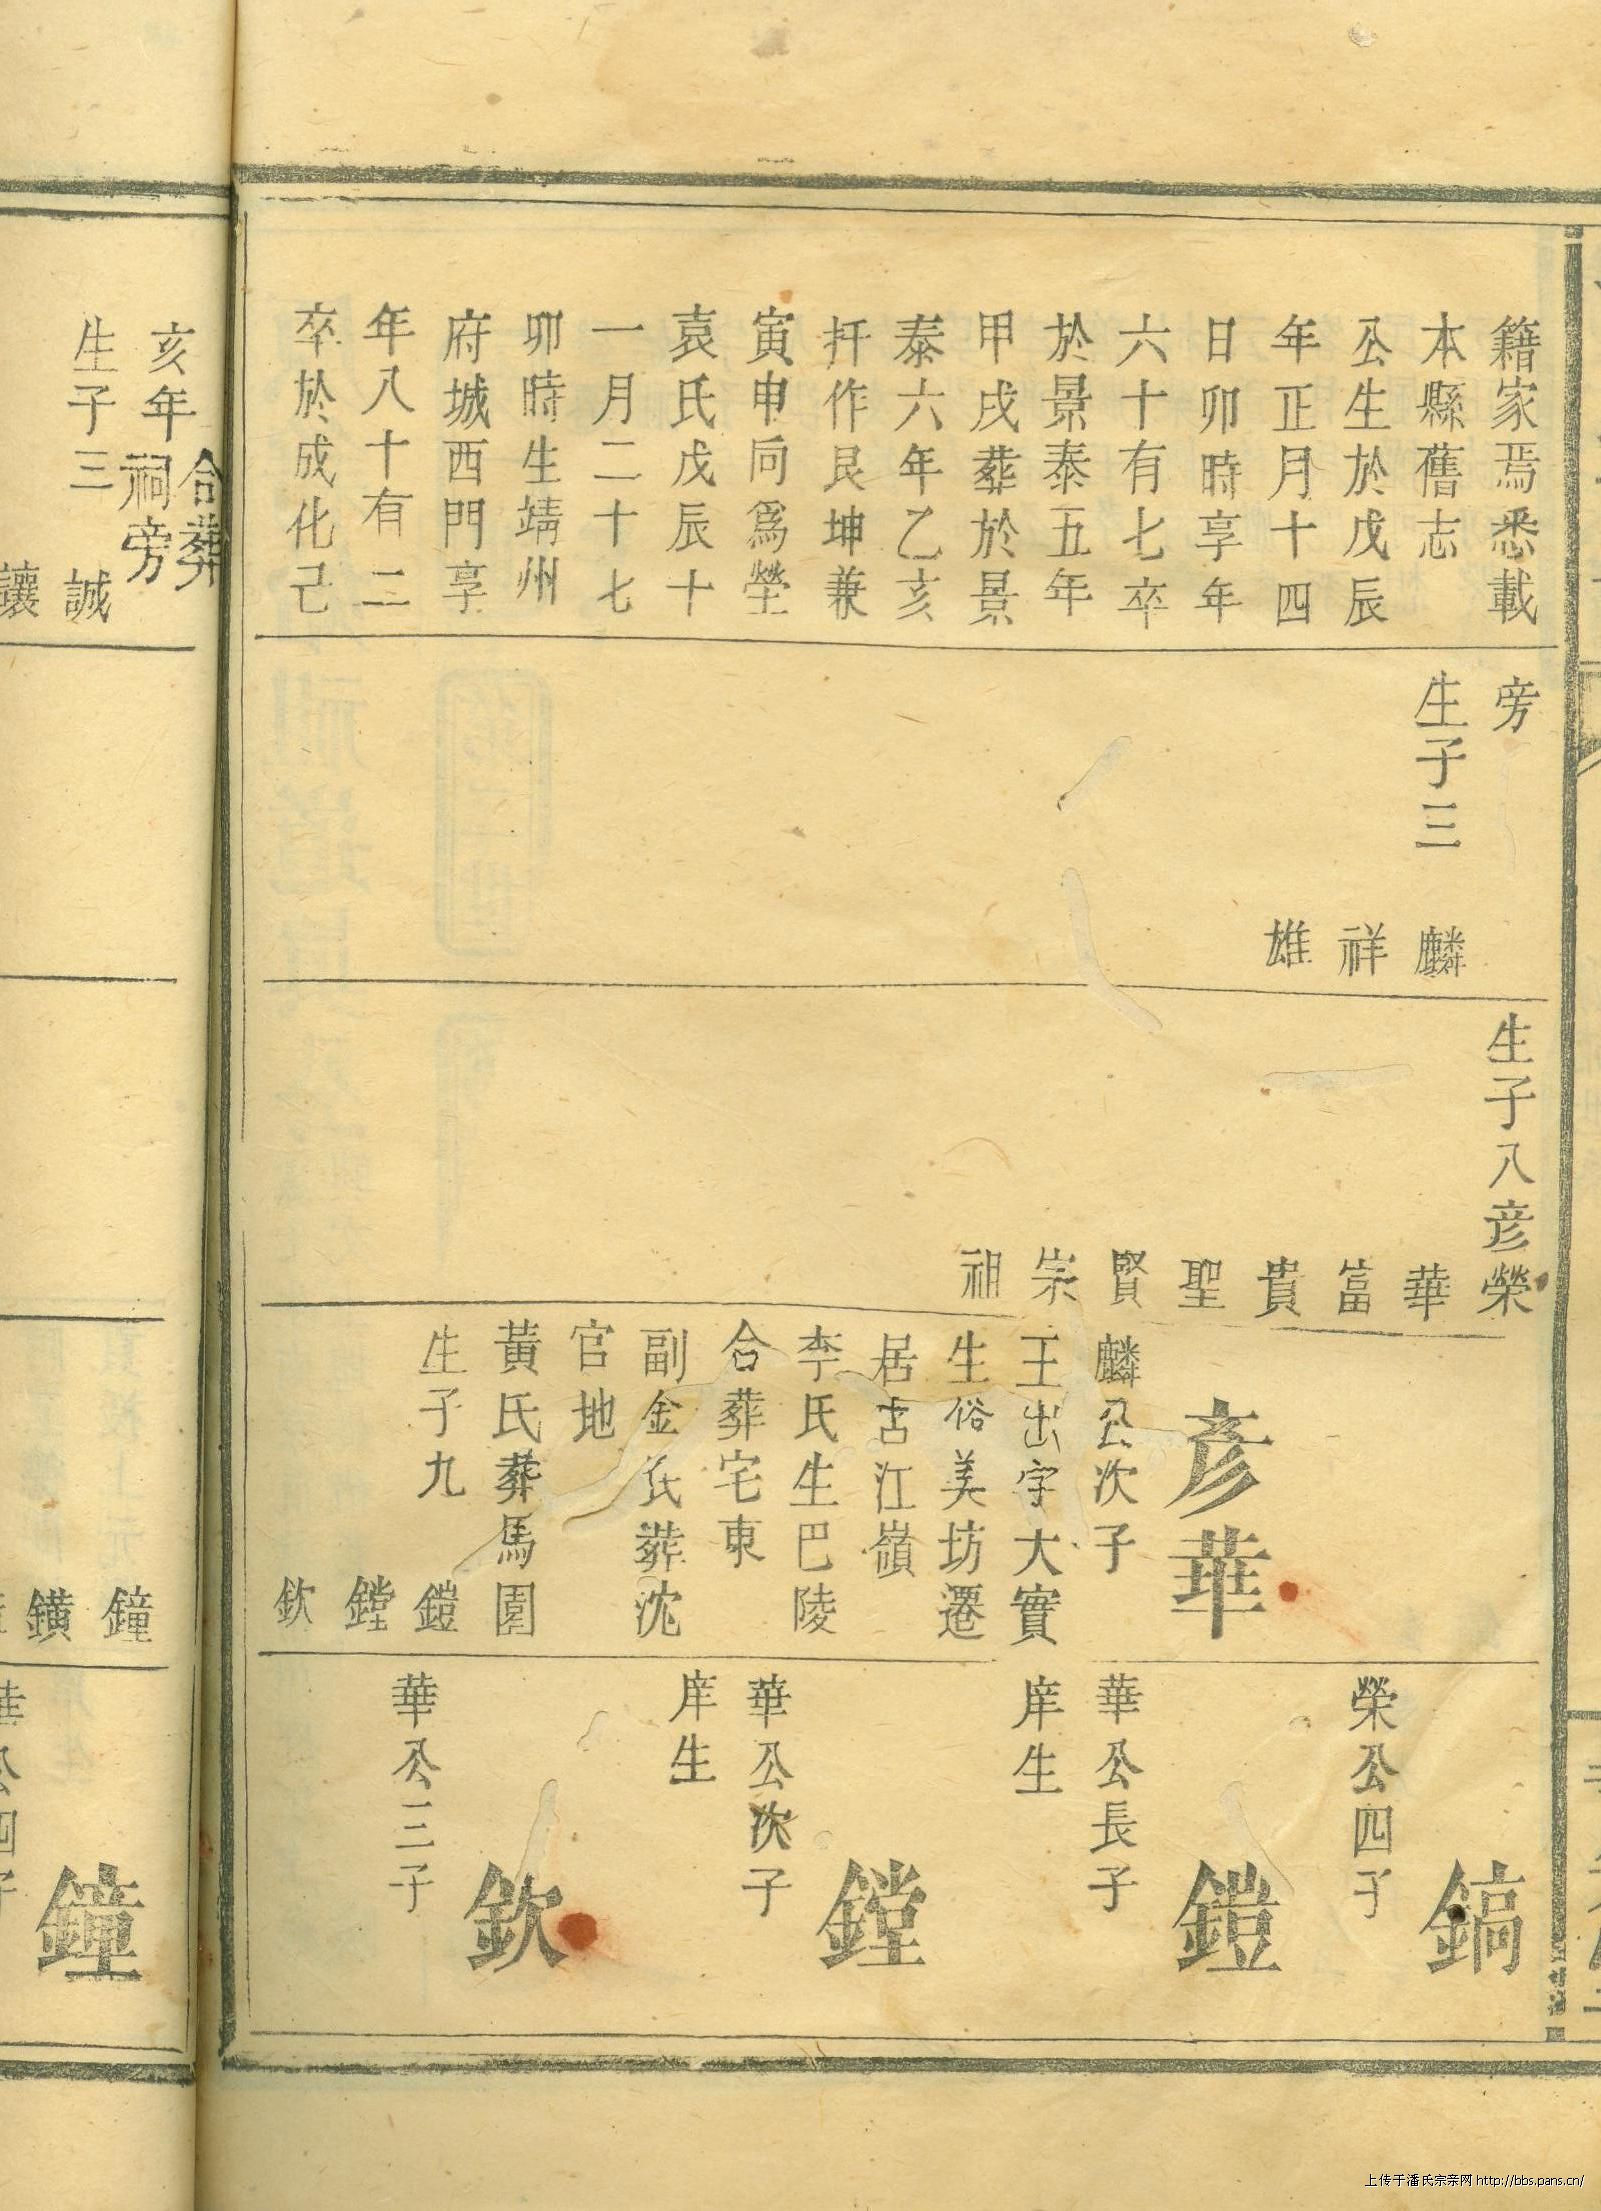 籍家焉悉載
本縣舊志
公生於戊辰
年正月十四
日卯時享年
六十有七卒
於景泰五年
甲戌葬於景
泰六年乙亥
扦作艮坤兼
寅申向爲塋
袁氏戊辰十
一月二十七
卯時生靖州
府城西門享
年八十有二
卒於成化己
旁
生子三
麟
祥
雄
生子八彦榮
華
富
貴
聖
賢
宗
祖
彥華
麟公次子
王出字大實
生俗美坊遷
居古江嶺
李氏生巴陵
合葬宅東
副金氏葬沈
官地
黃氏葬馬園
生子九
鎧
鏜
欽
鎬
榮公四子
鎧
華公長子
庠生
鏜
華公次子
庠生
欽
華公三子
亥年
合葬
祠旁
生子三
誠
讓
鐘
鐄
鐘
華公四子
上传于潘氏宗亲网 http://bbs.pans.cn/